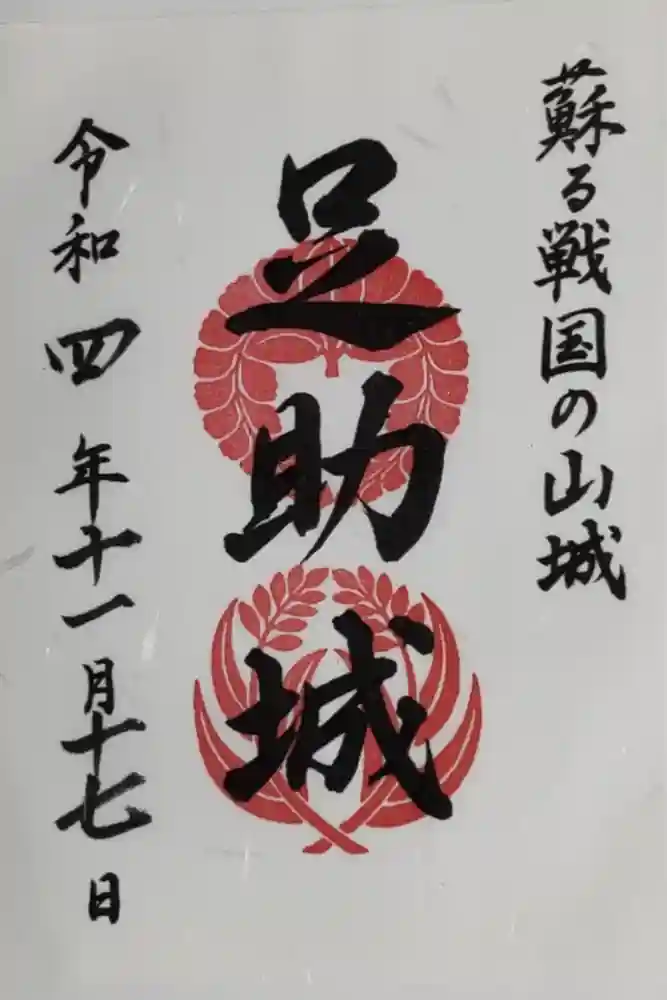 蘇る戦国の山城
足助城
令和四年十一月十七日